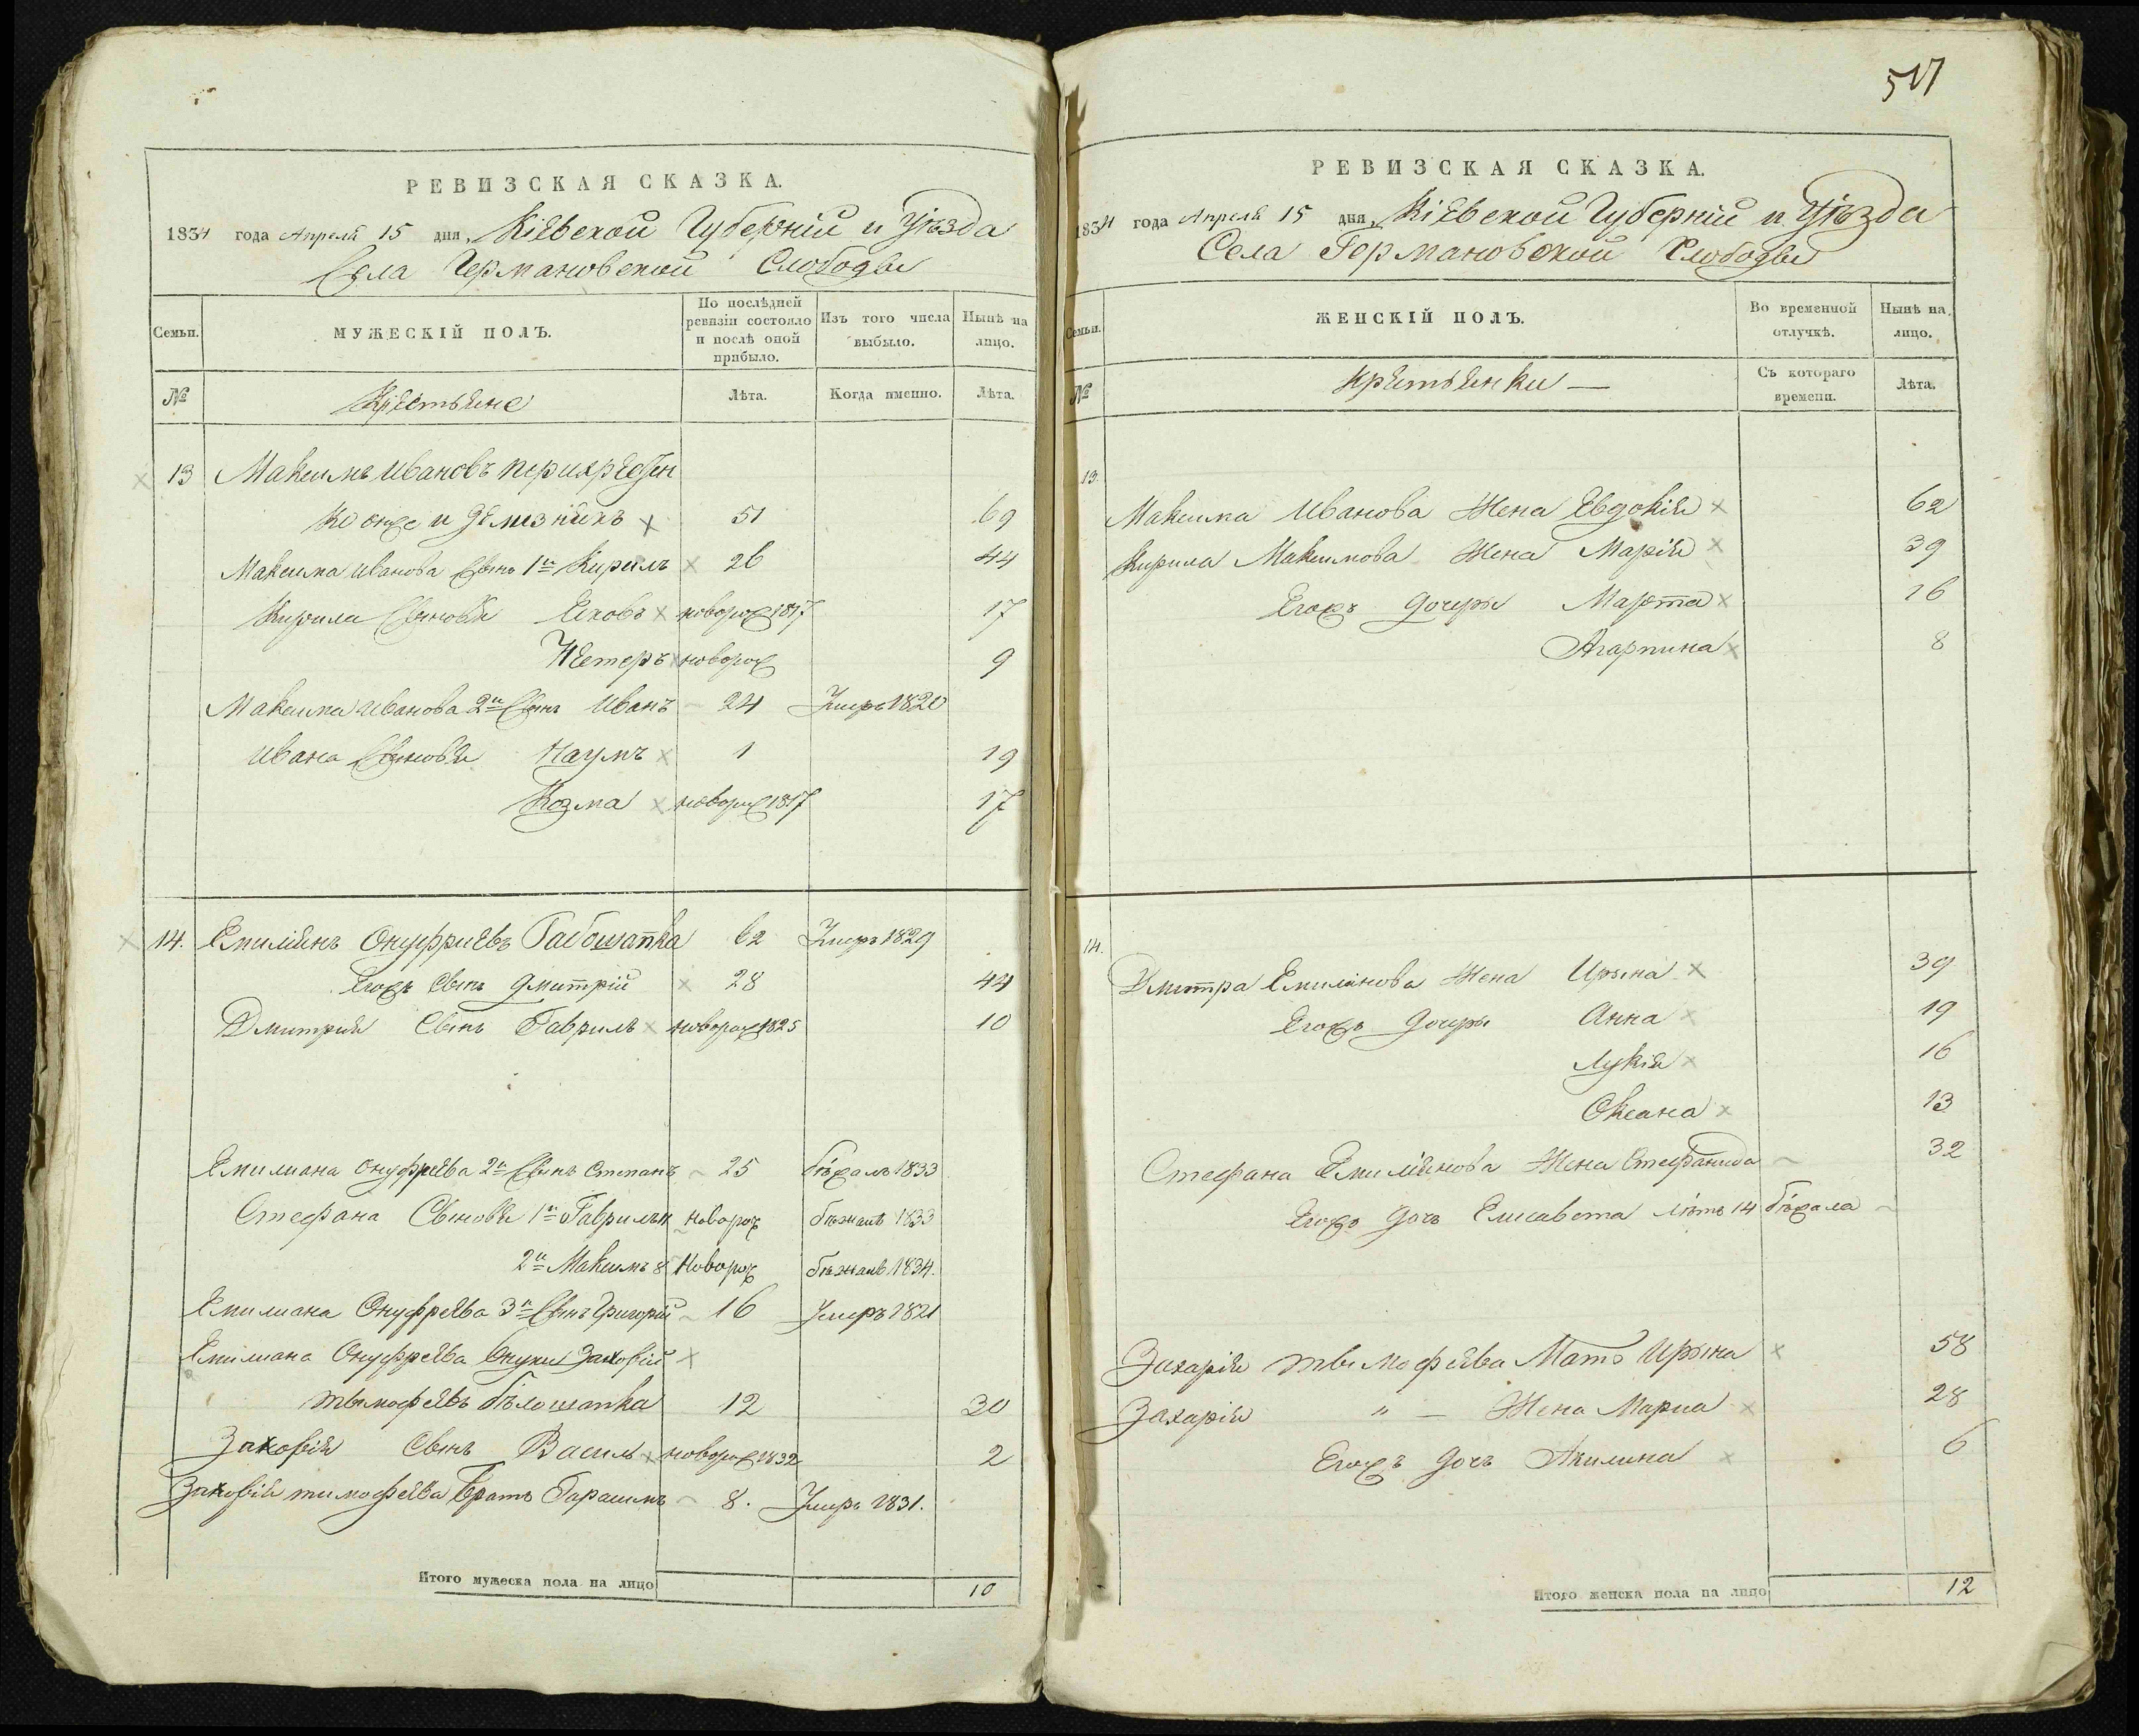 РЕВИЗСКАЯ СКАЗКА.
1834 года Апреля 15 дня, Кіевской Губерніи и Уѣзда
Села Германовской Слободы
Семьи.
МУЖЕСКІЙ ПОЛЪ.
По послѣдней ревизіи состояло и послѣ оной прибыло.
Изъ того числа выбыло.
Нынѣ на лицо.
№
Крестьяне
Лѣта.
Когда именно.
Лѣта.
13 Максимъ Ивановъ
51 69
Максима Иванова Сынъ 1й Кирилъ 26 44
Кирила Сыновья Яковъ новорож 1817 17
Петеръ новорож 9
Максима Иванова 2й Сынъ Иванъ 24 Умръ 1820
Ивана Сыновья Наумъ 1 19
Козма новорож 1817 17
14. Емиліянъ Онуфриевъ 62 Умръ 1829
Егожъ Сынъ Дмитрій 28 44
Дмитрия Сынъ Гаврилъ новорож 1825 10
Емилиана Онуфриева 2й Сынъ Степанъ 25 бѣжалъ 1833
Стефана Сыновья 1й Гаврилъ новорож бѣжалъ 1833
2й Максимъ 8 новорож бѣжалъ 1834.
Емилиана Онуфреева 3й Сынъ Григорій 16 Умръ 1821
Емилиана Онуфреева Внуки Захарій
тымофеевъ бѣлошапка 12 30
Захарія Сынъ Василъ новорож 1832 2
Захарія тимофеева Братъ Гарасимъ 8. Умръ 1831.
Итого мужеска пола на лицо 10
517
РЕВИЗСКАЯ СКАЗКА.
1834 года Апреля 15 дня, Кіевской Губерніи и Уѣзда
Села Германовской Слободы
Семьи.
ЖЕНСКІЙ ПОЛЪ.
Во временной отлучкѣ.
Нынѣ на лицо.
№
Крестьянки —
Съ котораго времени.
Лѣта.
13.
Максима Иванова Жена Евдокія 62
Кирила Максимова Жена Марія 39
Егожъ дочеры Марта 16
Агарпина 8
14.
Дмитра Емиліянова Жена Ирына 39
Егожъ дочеры Анна 19
Лукія 16
Оксана 13
Стефана Емиліянова Жена Стефанида 32
Егожъ дочь Елисавета лѣтъ 14 бѣжала
Захарія тымофеева Мать Ирына 58
Захарія " — Жена Мариа 28
Егожъ дочъ Акилина 6
Итого женска пола на лицо 12